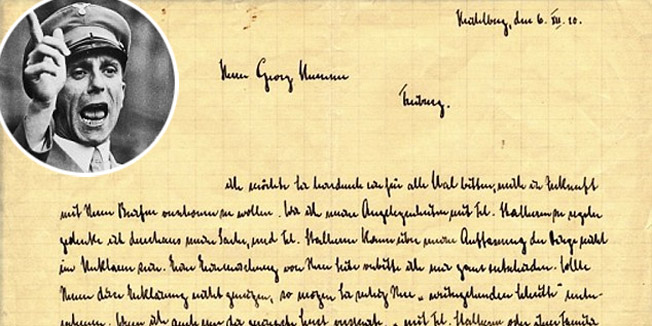 Heidelberg, den 6. XII. 20.
Herrn Georg Mumme
Freiburg.
ich möchte Sie hierdurch ein für alle Mal bitten, mich in Zukunft
mit Ihren Briefen verschonen zu wollen. Wie ich meine Angelegenheiten mit Frl. Stalherm zu regeln
gedenke ist durchaus meine Sache, und Frl. Stalherm kann über meine Auffassung der Dinge nicht
im Unklaren sein. Eine Einmischung von Ihrer Seite verbitte ich mir ganz entschieden. Sollte
Ihnen diese Erklärung nicht genügen, so mögen Sie ruhig Ihre „weitgehenden Schritte" unter-
nehmen. Wenn ich auch „mit Frl. Stalherm oder ihrer Familie